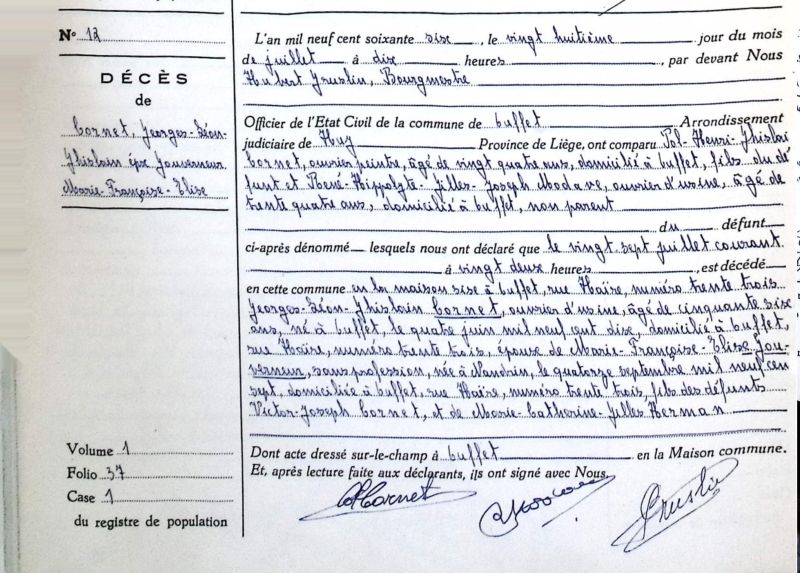 N° 12
DÉCÈS
de
Cornet, Georges-Léon-
Ghislain épx Gouverneur
Marie-Françoise-Elise
Volume 1
Folio 37
Case 1
du registre de population
L'an mil neuf cent soixante six, le vingt huitième jour du mois
de juillet à dix heures, par devant Nous
Hubert Gruslin, Bourgmestre
Officier de l'Etat Civil de la commune de Ouffet Arrondissement
judiciaire de Huy Province de Liège, ont comparu Pol-Henri-Ghislai
Cornet, ouvrier peintre, âgé de vingt quatre ans, domicilié à Ouffet, fils du dé
funt et René-Hippolyte-Gilles-Joseph Modave, ouvrier d'usine, âgé de
trente quatre ans, domicilié à Ouffet, non parent
du défunt
ci-après dénommé lesquels nous ont déclaré que le vingt sept juillet courant
à vingt deux heures, est décédé
en cette commune en la maison sise à Ouffet, rue Haïre, numéro trente trois
Georges-Léon-Ghislain Cornet, ouvrier d'usine, âgé de cinquante six
ans, né à Ouffet, le quatre juin mil neuf cent dix domicilié à Ouffet,
rue Haïre, numéro trente trois, époux de Marie-Françoise-Elise Gou-
verneur, sans profession, née à Nandrin, le quatorze septembre mil neuf cen
sept, domiciliée à Ouffet, rue Haïre, numéro trente trois, fils des défunts
Victor-Joseph Cornet, et de Marie-Catherine-Gilles Herman
Dont acte dressé sur-le-champ à Ouffet en la Maison commune.
Et, après lecture faite aux déclarants, ils ont signé avec Nous.
Cornet
Gruslin